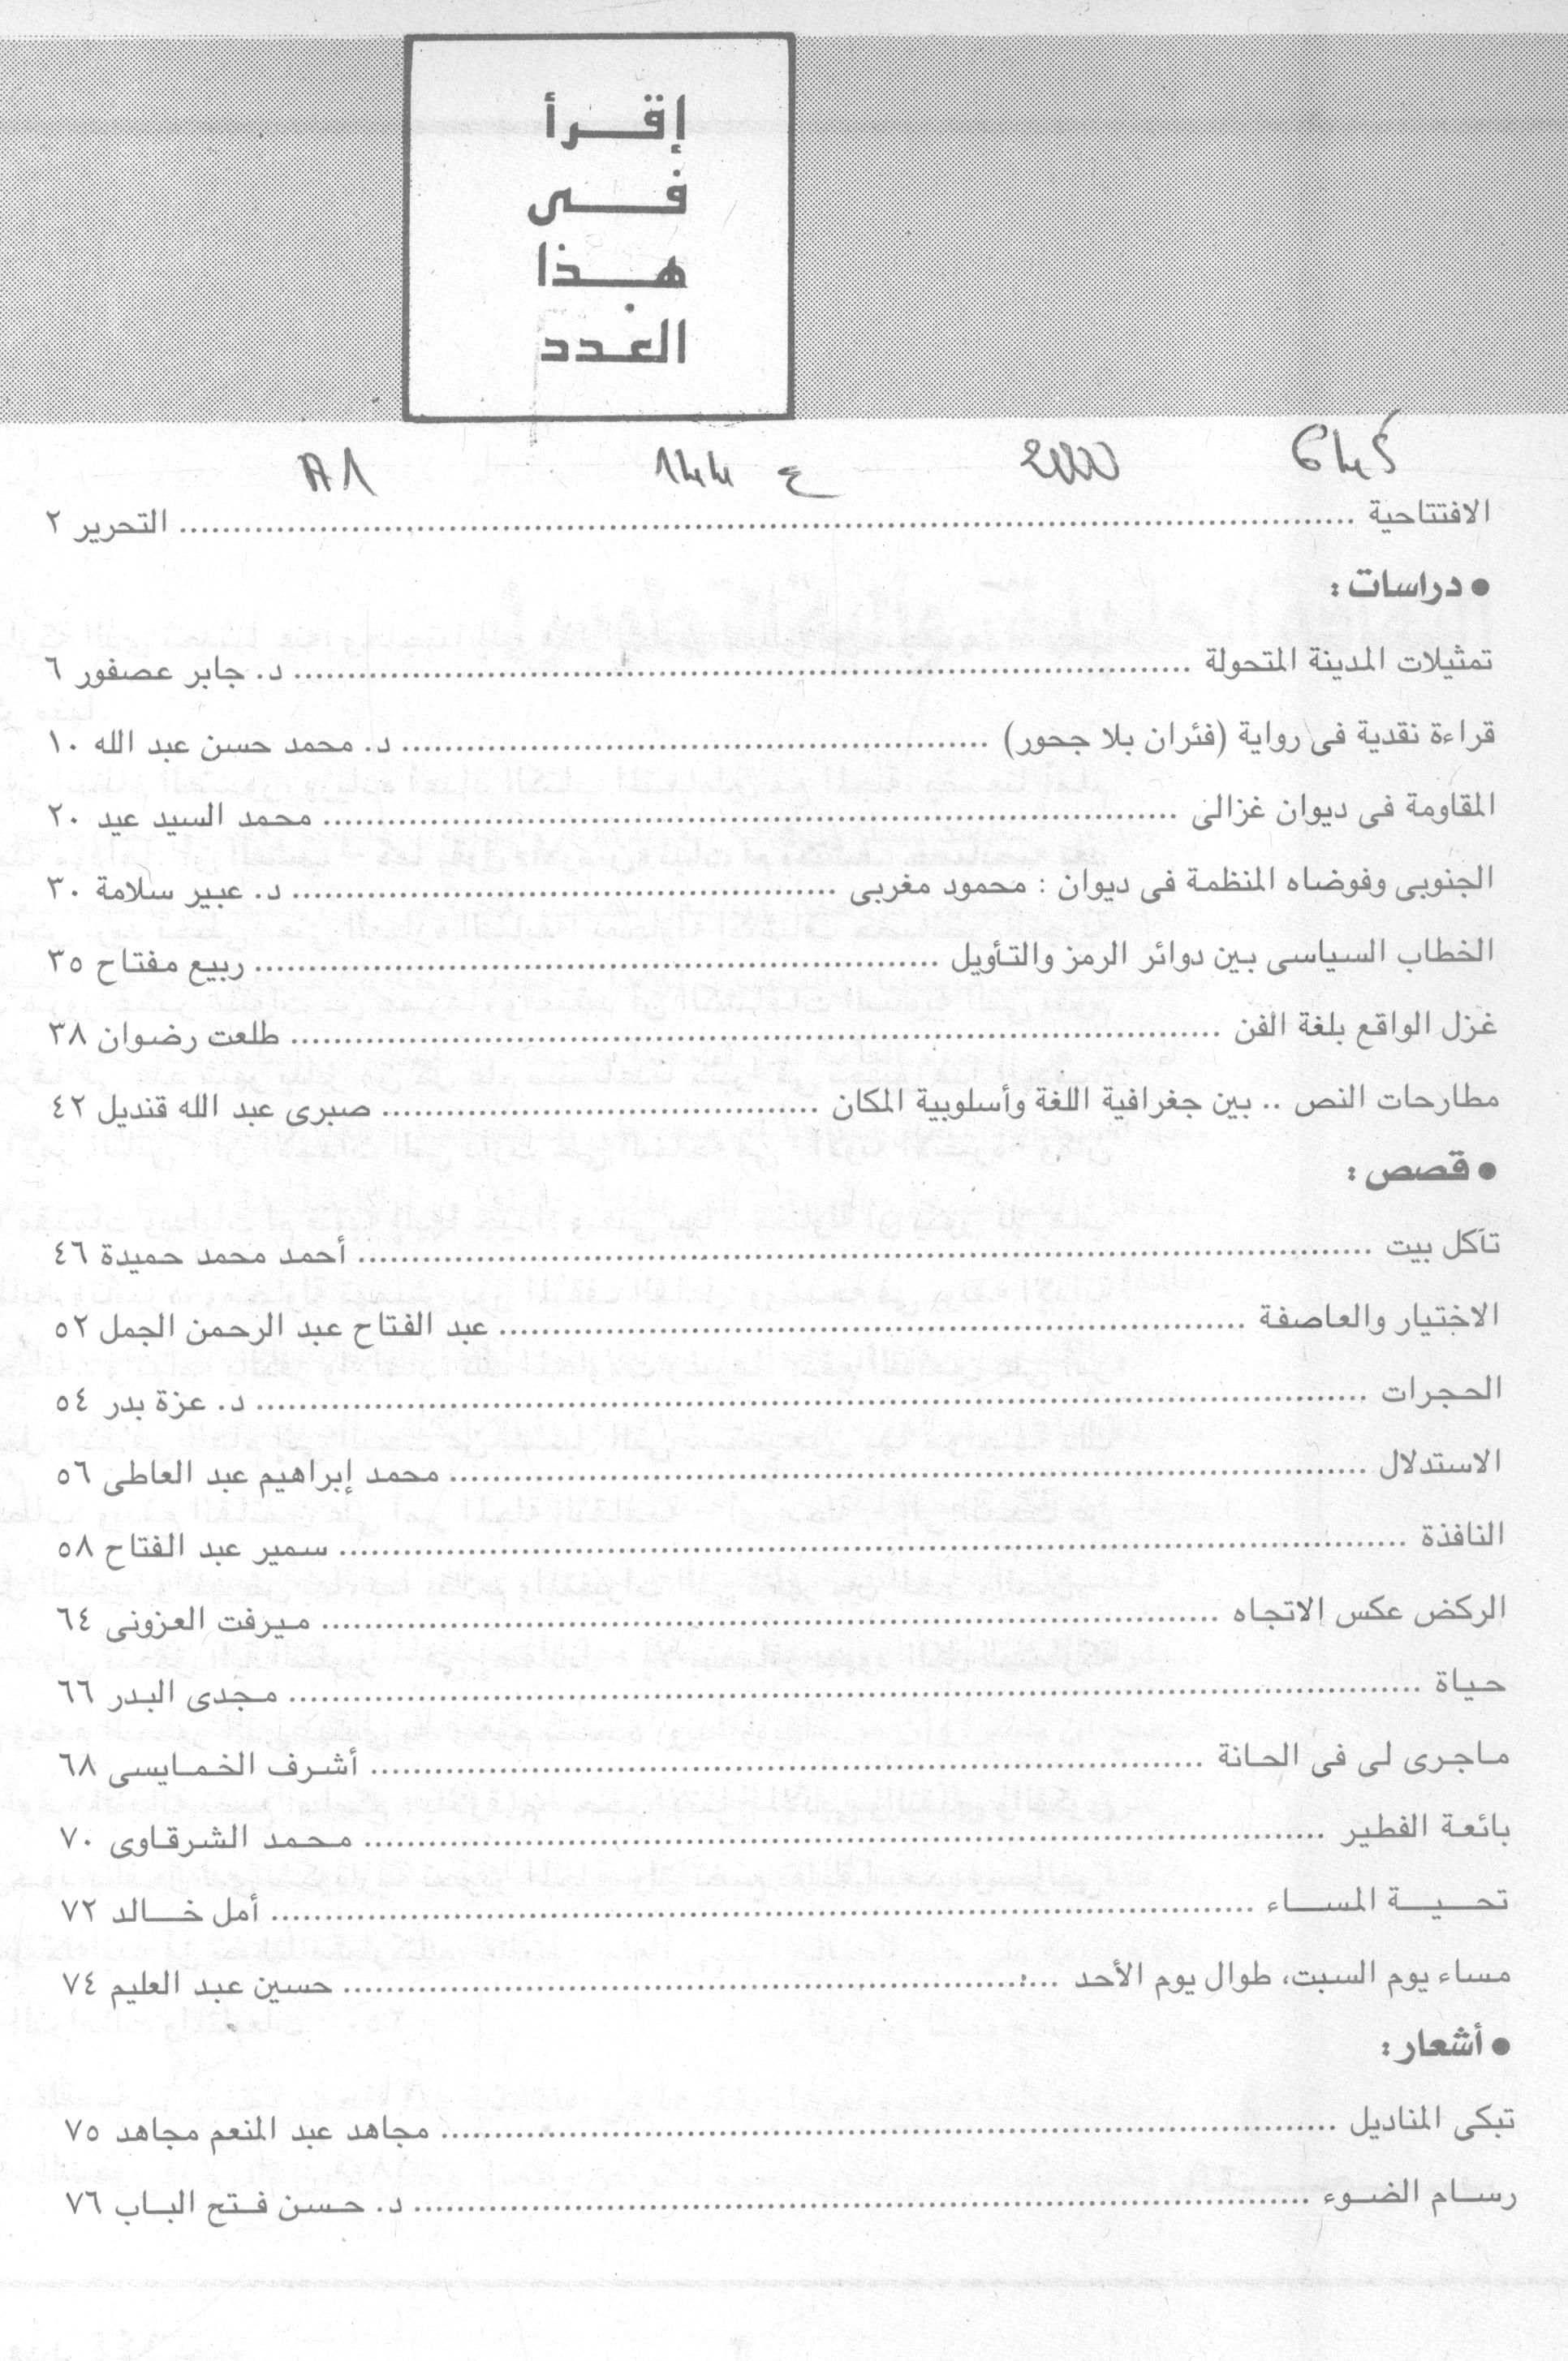 إقرأ
فى
هذا
العدد
2000 ع A1
الافتتاحية ........ التحرير ٢
● دراسات :
تمثيلات المدينة المتحولة ........ د. جابر عصفور ٦
قراءة نقدية فى رواية (فئران بلا جحور) ........ د. محمد حسن عبد الله ١٠
المقاومة فى ديوان غزالى ........ محمد السيد عيد ٢٠
الجنوبى وفوضاه المنظمة فى ديوان : محمود مغربى ........ د. عبير سلامة ٣٠
الخطاب السياسى بين دوائر الرمز والتأويل ........ ربيع مفتاح ٣٥
غزل الواقع بلغة الفن ........ طلعت رضوان ٣٨
مطارحات النص .. بين جغرافية اللغة وأسلوبية المكان ........ صبرى عبد الله قنديل ٤٢
● قصص :
تآكل بيت ........ أحمد محمد حميدة ٤٦
الاختيار والعاصفة ........ عبد الفتاح عبد الرحمن الجمل ٥٢
الحجرات ........ د. عزة بدر ٥٤
الاستدلال ........ محمد إبراهيم عبد العاطى ٥٦
النافذة ........ سمير عبد الفتاح ٥٨
الركض عكس الاتجاه ........ ميرفت العزونى ٦٤
حياة ........ مجدى البدر ٦٦
ماجرى لى فى الحانة ........ أشرف الخمايسى ٦٨
بائعة الفطير ........ محمد الشرقاوى ٧٠
تحيـــة المســاء ........ أمل خــالد ٧٢
مساء يوم السبت، طوال يوم الأحد ........ حسين عبد العليم ٧٤
● أشعار :
تبكى المناديل ........ مجاهد عبد المنعم مجاهد ٧٥
رسـام الضـوء ........ د. حـسن فـتح البـاب ٧٦